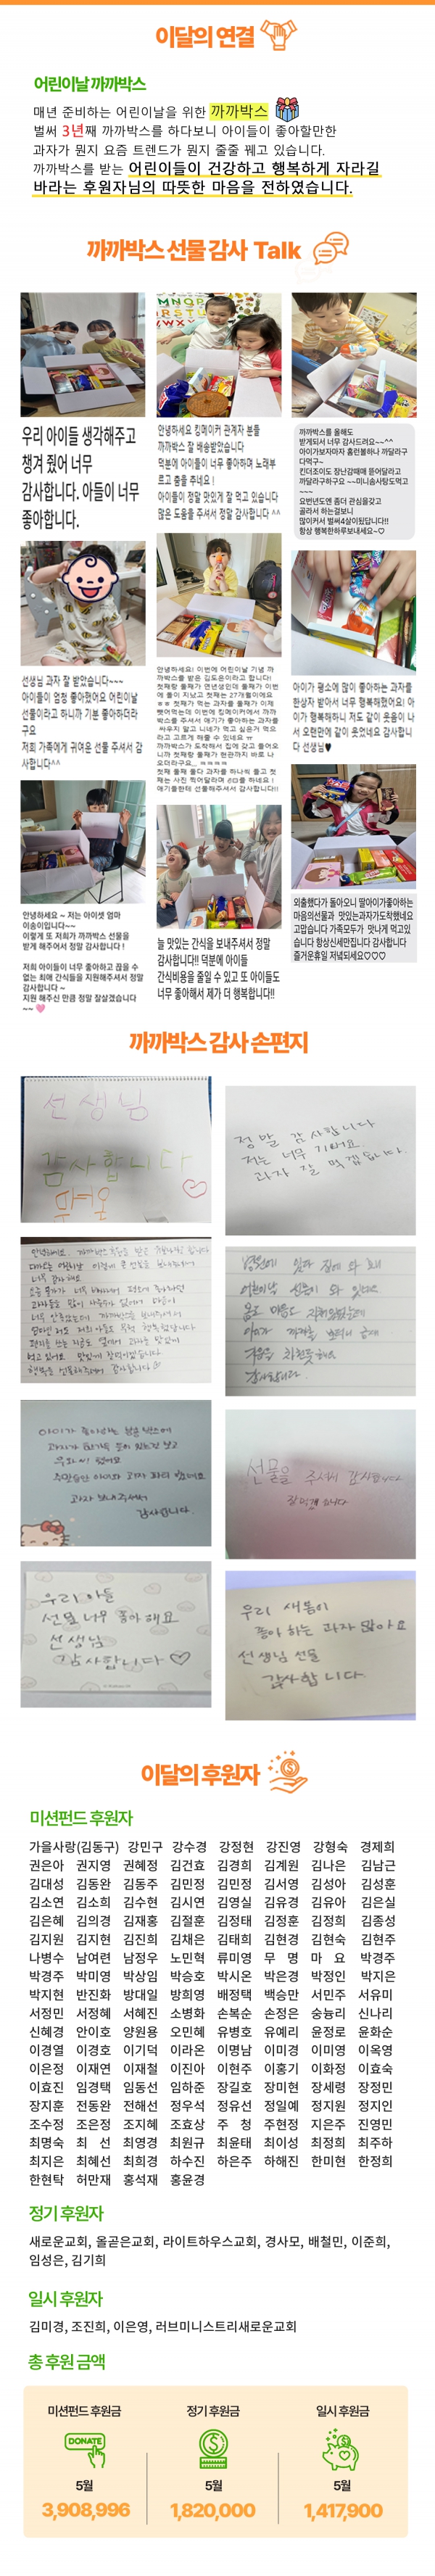 이달의 연결
어린이날 까까박스
매년 준비하는 어린이날을 위한 까까박스
벌써 3년째 까까박스를 하다보니 아이들이 좋아할만한
과자가 뭔지 요즘 트렌드가 뭔지 줄줄 꿰고 있습니다.
까까박스를 받는 어린이들이 건강하고 행복하게 자라길
바라는 후원자님의 따뜻한 마음을 전하였습니다.
까까박스 선물 감사 Talk
우리 아이들 생각해주고
챙겨 줬어 너무
감사합니다. 아들이 너무
좋아합니다.
안녕하세요 킹메이커 관계자 분들
까까박스 잘 배송받았습니다
덕분에 아이들이 너무 좋아하며 노래부
르고 춤을 추네요 !
아이들이 정말 맛있게 잘 먹고 있습니다
많은 도움을 주셔서 정말 감사합니다 ^^
까까박스를 올해도
받게되서 너무 감사드려요~~^^
아이가보자마자 홈런볼하나 까달라구
다먹구~
킨더조이도 장난감때매 뜯어달라고
까달라구하구요 ~~미니솜사탕도먹고
~~~
요번년도엔 좀더 관심을갖고
골라서 하는걸보니
많이커서 벌써4살이됬답니다!!
항상 행복한하루보내세요~♡
선생님 과자 잘 받았습니다~~~
아이들이 엄청 좋아했어요 어린이날
선물이라고 하니까 기분 좋아하더라
구요
저희 가족에게 귀여운 선물 주셔서 감
사합니다^^
안녕하세요! 이번에 어린이날 기념 까
까박스를 받은 김도윤이라고 합니다!
첫째랑 둘째가 연년생인데 둘째가 이번
에 돌이 지났고 첫째는 27개월이에요
ㅎㅎ 첫째가 먹는 과자를 둘째가 이제
뺏어먹는데 이번에 킹메이커에서 까까
박스를 주셔서 애기가 좋아하는 과자를
싸우지 말고 니네가 먹고 싶은거 먹으
라고 고르게 해줄 수 있네요 ㅠ
까까박스가 도착해서 집에 갖고 들어오
니까 첫째랑 둘째가 현관까지 바로 나
오더라구요_ ㅋㅋㅋㅋ
첫째 둘째 둘다 과자를 하나씩 들고 첫
째는 사진 찍어달라며 손V를 하네요 !
애기들한테 선물해주셔서 감사합니다!!
아이가 평소에 많이 좋아하는 과자를
한상자 받아서 너무 행복해했어요! 아
이가 행복해하니 저도 같이 웃음이 나
서 오랜만에 같이 웃었네요 감사합니
다 선생님♥
안녕하세요 ~ 저는 아이셋 엄마
이송이입니다~~
이렇게 또 저희가 까까박스 선물을
받게 해주어서 정말 감사합니다 !
저희 아이들이 너무 좋아하고 끊을 수
없는 최애 간식들을 지원해주셔서 정말
감사합니다 ~
지원 해주신 만큼 정말 잘살겠습니다
~~
늘 맛있는 간식을 보내주셔서 정말
감사합니다!! 덕분에 아이들
간식비용을 줄일 수 있고 또 아이들도
너무 좋아해서 제가 더 행복합니다!!
외출했다가 돌아오니 딸아이가좋아하는
마음의선물과 맛있는과자가도착했네요
고맙습니다 가족모두가 맛나게 먹고있
습니다 항상신세만집니다 감사합니다
즐거운휴일 저녁되세요♡♡♡
까까박스 감사 손편지
선생님
감사합니다
정말 감사합니다
저는 너무 기뻐요.
과자 잘 먹겠습니다.
선물을 주셔서 감사합니다
잘 먹겠습니다
우리 아들
선물 너무 좋아해요
선생님
감사합니다 ♡
우리 새봄이
좋아 하는 과자 많아요
선생님 선물
감사합니다
이달의 후원자
미션펀드 후원자
가을사랑(김동구) 강민구 강수경 강정현 강진영 강형숙 경제희
권은아 권지영 권혜정 김건효 김경희 김계원 김나은 김남근
김대성 김동완 김동주 김민정 김민정 김서영 김성아 김성훈
김소연 김소희 김수현 김시연 김영실 김유경 김유아 김은실
김은혜 김의경 김재홍 김절훈 김정태 김정훈 김정희 김종성
김지원 김지현 김진희 김채은 김태희 김현경 김현숙 김현주
나병수 남여련 남정우 노민혁 류미영 무 명 마 요 박경주
박경주 박미영 박상임 박승호 박시온 박은경 박정인 박지은
박지현 반진화 방대일 방희영 배정택 백승만 서민주 서유미
서정민 서정혜 서혜진 소병화 손복순 손정은 숭늉리 신나리
신혜경 안이호 양원용 오민혜 유병호 유예리 윤정로 윤화순
이경열 이경호 이기덕 이라온 이명남 이미경 이미영 이옥영
이은정 이재연 이재철 이진아 이현주 이홍기 이화정 이효숙
이효진 임경택 임동선 임하준 장길호 장미현 장세령 장정민
장지훈 전동완 전해선 정우석 정유선 정일예 정지원 정지인
조수정 조은정 조지혜 조효상 주 청 주현정 지은주 진영민
최명숙 최 선 최영경 최원규 최윤태 최이성 최정희 최주하
최지은 최혜선 최희경 하수진 하은주 하해진 한미현 한정희
한현탁 허만재 홍석재 홍윤경
정기 후원자
새로운교회, 올곧은교회, 라이트하우스교회, 경사모, 배철민, 이준희,
임성은, 김기희
일시 후원자
김미경, 조진희, 이은영, 러브미니스트리새로운교회
총 후원 금액
미션펀드 후원금 정기 후원금 일시 후원금
DONATE
5월 5월 5월
3,908,996 1,820,000 1,417,900